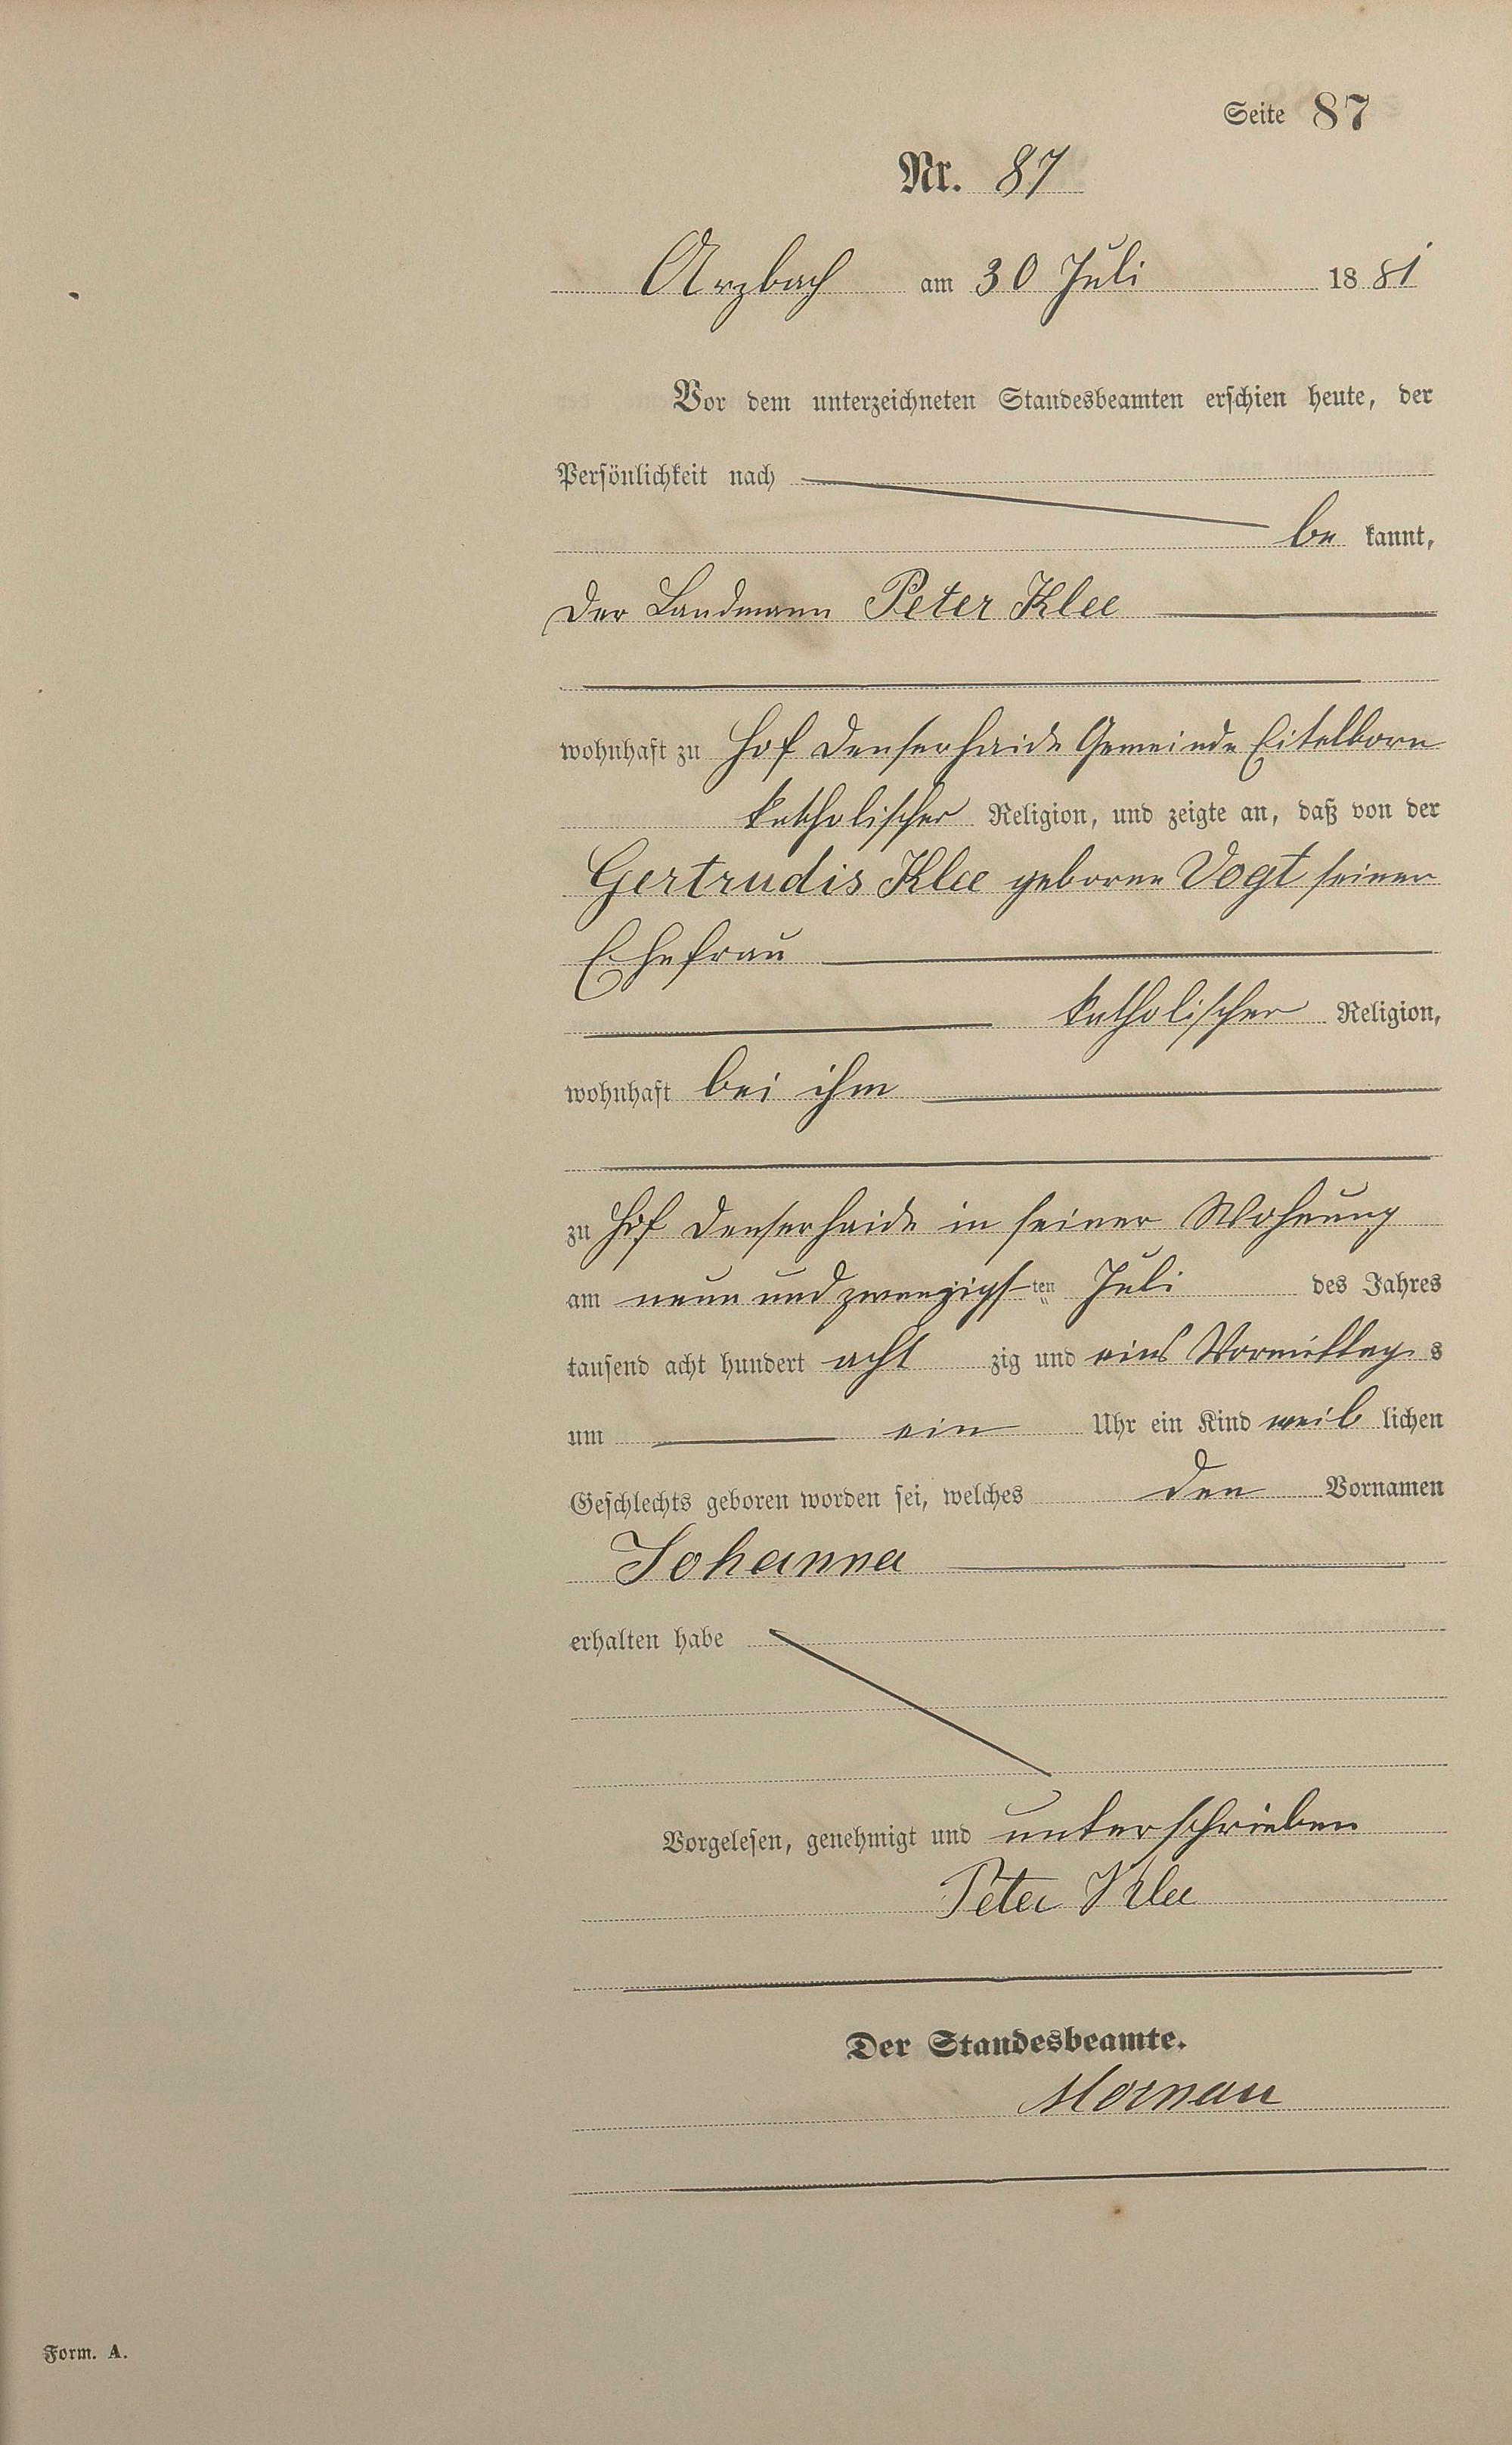 Seite 87
Nr. 87
Arzbach am 30 Juli 1881
Vor dem unterzeichneten Standesbeamten erschien heute, der
Persönlichkeit nach
be kannt,
der Landmann Peter Klee
wohnhaft zu Hof Denserhaide Gemeinde Eitelborn
katholischer Religion, und zeigte an, daß von der
Gertrudis Klee geborne Vogt seiner
Ehefrau
katholischer Religion,
wohnhaft bei ihm
zu Hof Denserhaide in seiner Wohnung
am neun und zwanzigsten Juli des Jahres
tausend acht hundert acht zig und eins Vormittags
um ein Uhr ein Kind weib lichen
Geschlechts geboren worden sei, welches den Vornamen
Johanna
erhalten habe
Vorgelesen, genehmigt und unterschrieben
Peter Klee
Der Standesbeamte.
Form. A.